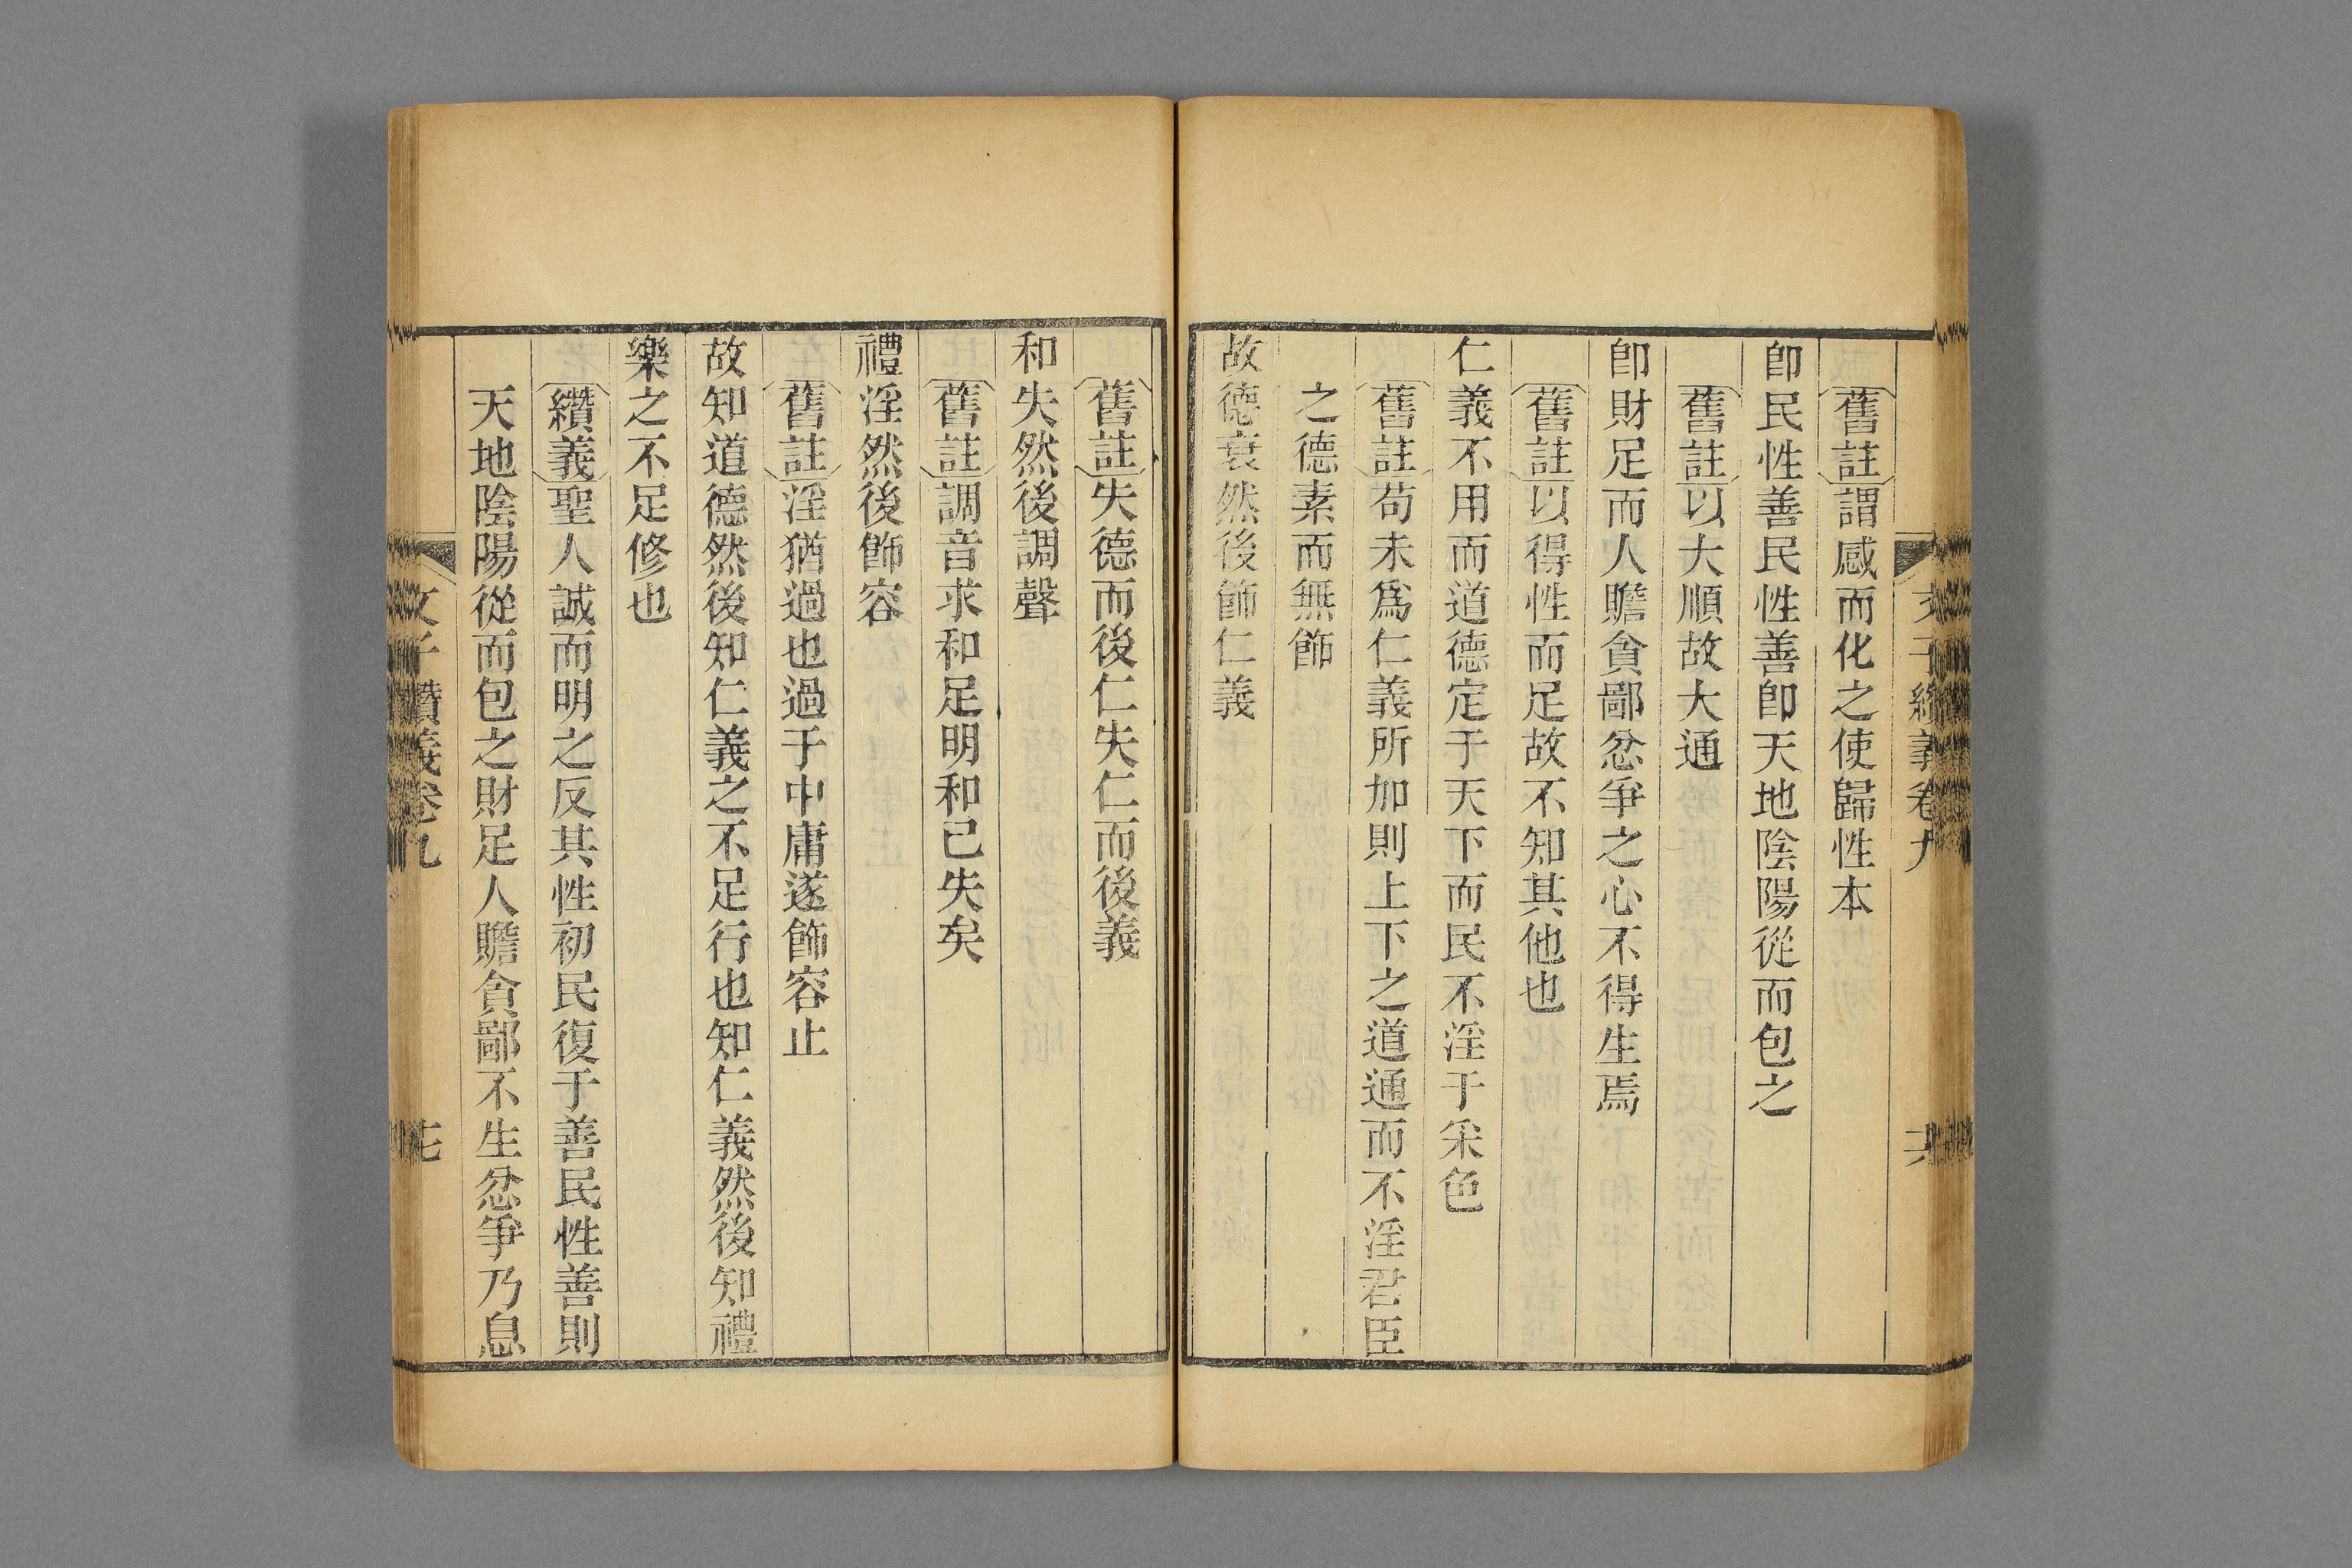 舊註謂感而化之使歸性本
卽民性善民性善卽天地陰陽從而包之
舊註以大順故大通
卽財足而人贍貪鄙忿爭之心不得生焉
舊註以得性而足故不知其他也
仁義不用而道德定于天下而民不淫于采色
舊註苟未爲仁義所加則上下之道通而不淫君臣
之德素而無飾
故德衰然後飾仁義
舊註失德而後仁失仁而後義
和失然後調聲
舊註調音求和足明和已失矣
禮淫然後飾容
舊註淫猶過也過于中庸遂飾容止
故知道德然後知仁義之不足行也知仁義然後知禮
樂之不足修也
纘義聖人誠而明之反其性初民復于善民性善則
天地陰陽從而包之財足人贍貪鄙不生忿爭乃息
文子纘義卷九